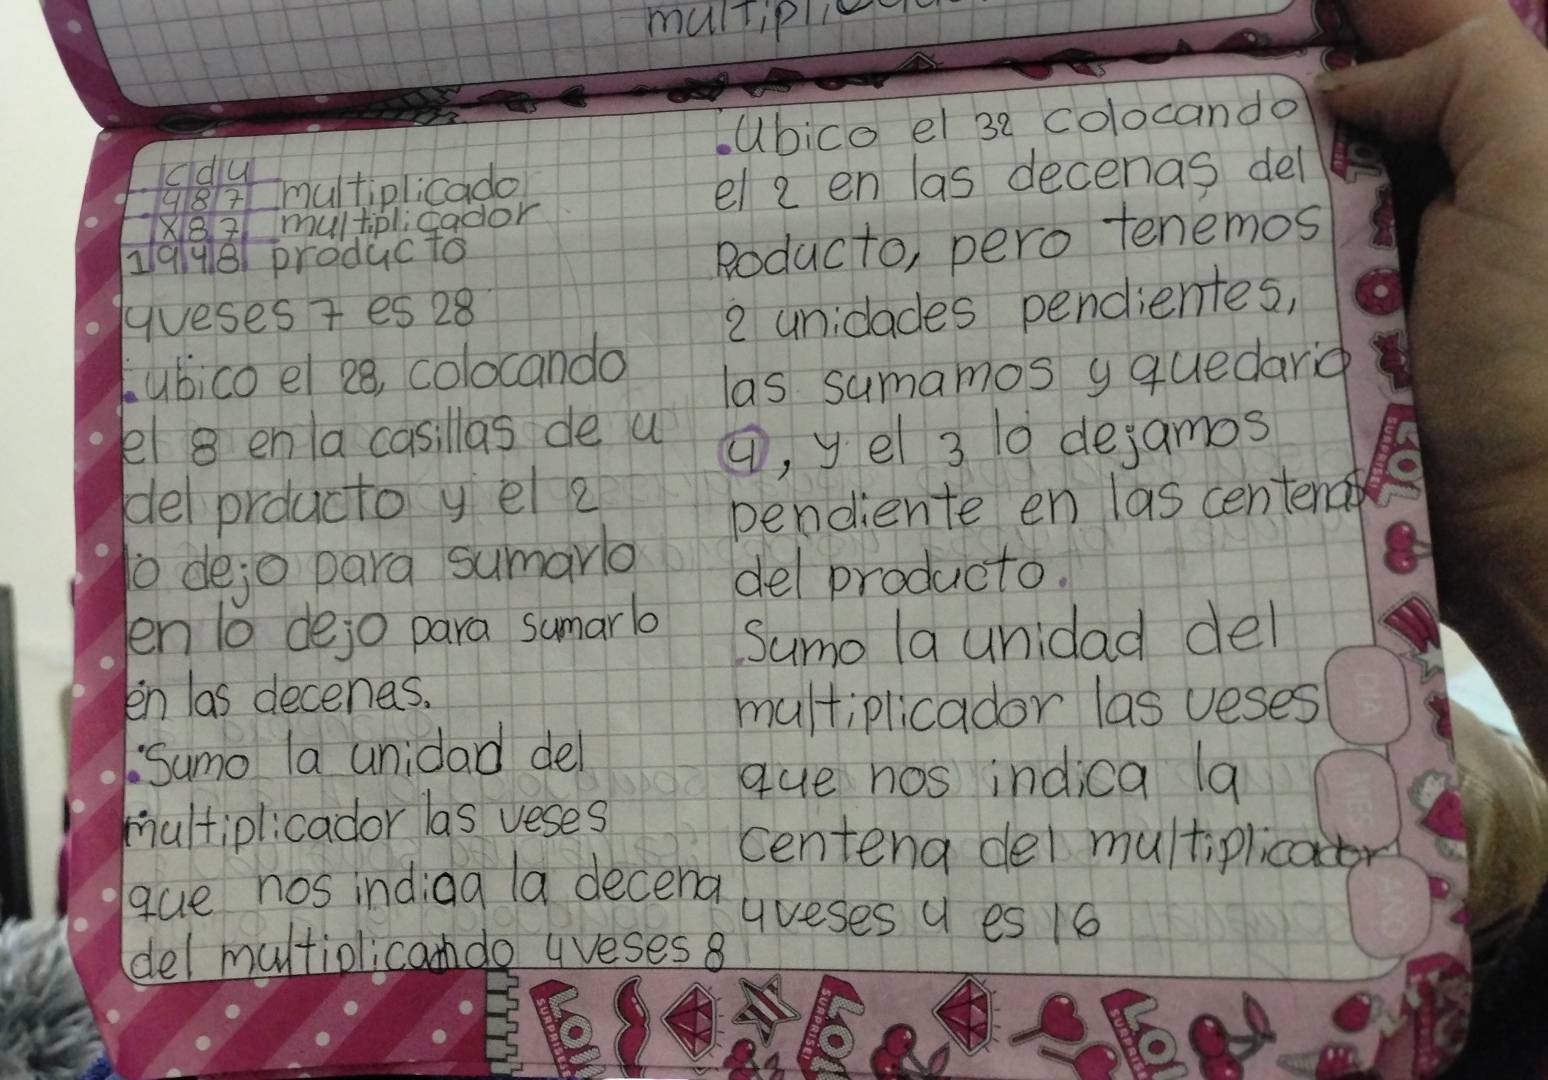 multiplic
cdu
487 multiplicado
x87 multiplicador
1948 producto
4veses 7 es 28
.ubico el 28, colocando
el 8 en la casillas de u
del prducto y el 2
lo dejo para sumarlo
en lo dejo para sumarlo
en las decenas.
.Sumo la unidad del
multiplicador las veses
que nos indica la decena
del multiplicando 4veses 8
.Ubico el 32 colocando
el 2 en las decenas del
Poducto, pero tenemos
2 unidades pendientes,
las sumamos y quedaria
4, y el 3 lo dejamos
pendiente en las centenas
del producto.
.Sumo la unidad del
multiplicador las veses
que nos indica la
centena del multiplicador
4veses 4 es 16
DIA
MES
AÑO
LOL
SURPRISE!
LOL
SURPRISE!
LOL
SURPRISE!
LOL
SURPRISE!